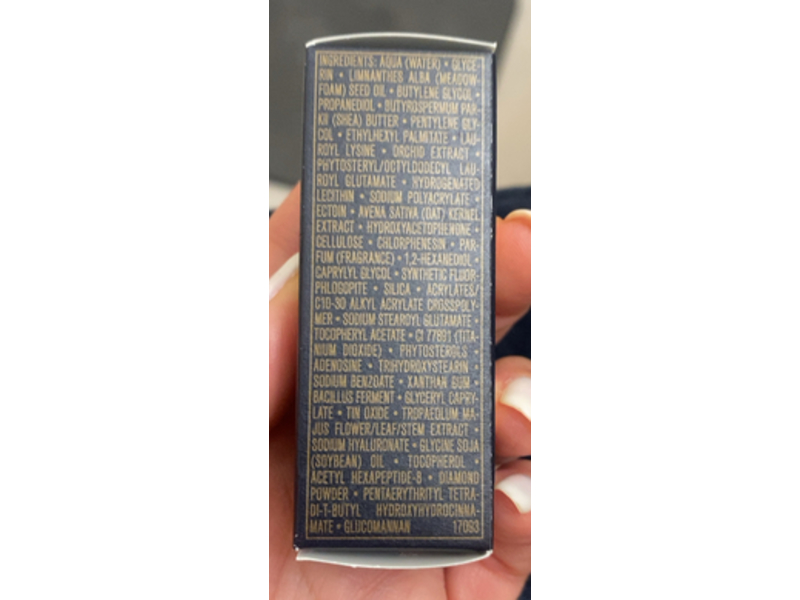 INGREDIENTS: AQUA (WATER) • GLYCE-
RIN • LIMNANTHES ALBA (MEADOW-
FOAM) SEED OIL • BUTYLENE GLYCOL •
PROPANEDIOL • BUTYROSPERMUM PAR-
KII (SHEA) BUTTER • PENTYLENE GLY-
COL • ETHYLHEXYL PALMITATE • LAU-
ROYL LYSINE • ORCHID EXTRACT •
PHYTOSTERYL/OCTYLDODECYL LAU-
ROYL GLUTAMATE • HYDROGENATED
LECITHIN • SODIUM POLYACRYLATE •
ECTOIN • AVENA SATIVA (OAT) KERNEL
EXTRACT • HYDROXYACETOPHENONE •
CELLULOSE • CHLORPHENESIN • PAR-
FUM (FRAGRANCE) • 1,2-HEXANEDIOL •
CAPRYLYL GLYCOL • SYNTHETIC FLUOR-
PHLOGOPITE • SILICA • ACRYLATES/
C10-30 ALKYL ACRYLATE CROSSPOLY-
MER • SODIUM STEAROYL GLUTAMATE •
TOCOPHERYL ACETATE • CI 77891 (TITA-
NIUM DIOXIDE) • PHYTOSTEROLS •
ADENOSINE • TRIHYDROXYSTEARIN •
SODIUM BENZOATE • XANTHAN GUM •
BACILLUS FERMENT • GLYCERYL CAPRY-
LATE • TIN OXIDE • TROPAEOLUM MA-
JUS FLOWER/LEAF/STEM EXTRACT •
SODIUM HYALURONATE • GLYCINE SOJA
(SOYBEAN) OIL • TOCOPHEROL •
ACETYL HEXAPEPTIDE-8 • DIAMOND
POWDER • PENTAERYTHRITYL TETRA-
DI-T-BUTYL HYDROXYHYDROCINNA-
MATE • GLUCOMANNAN 17093